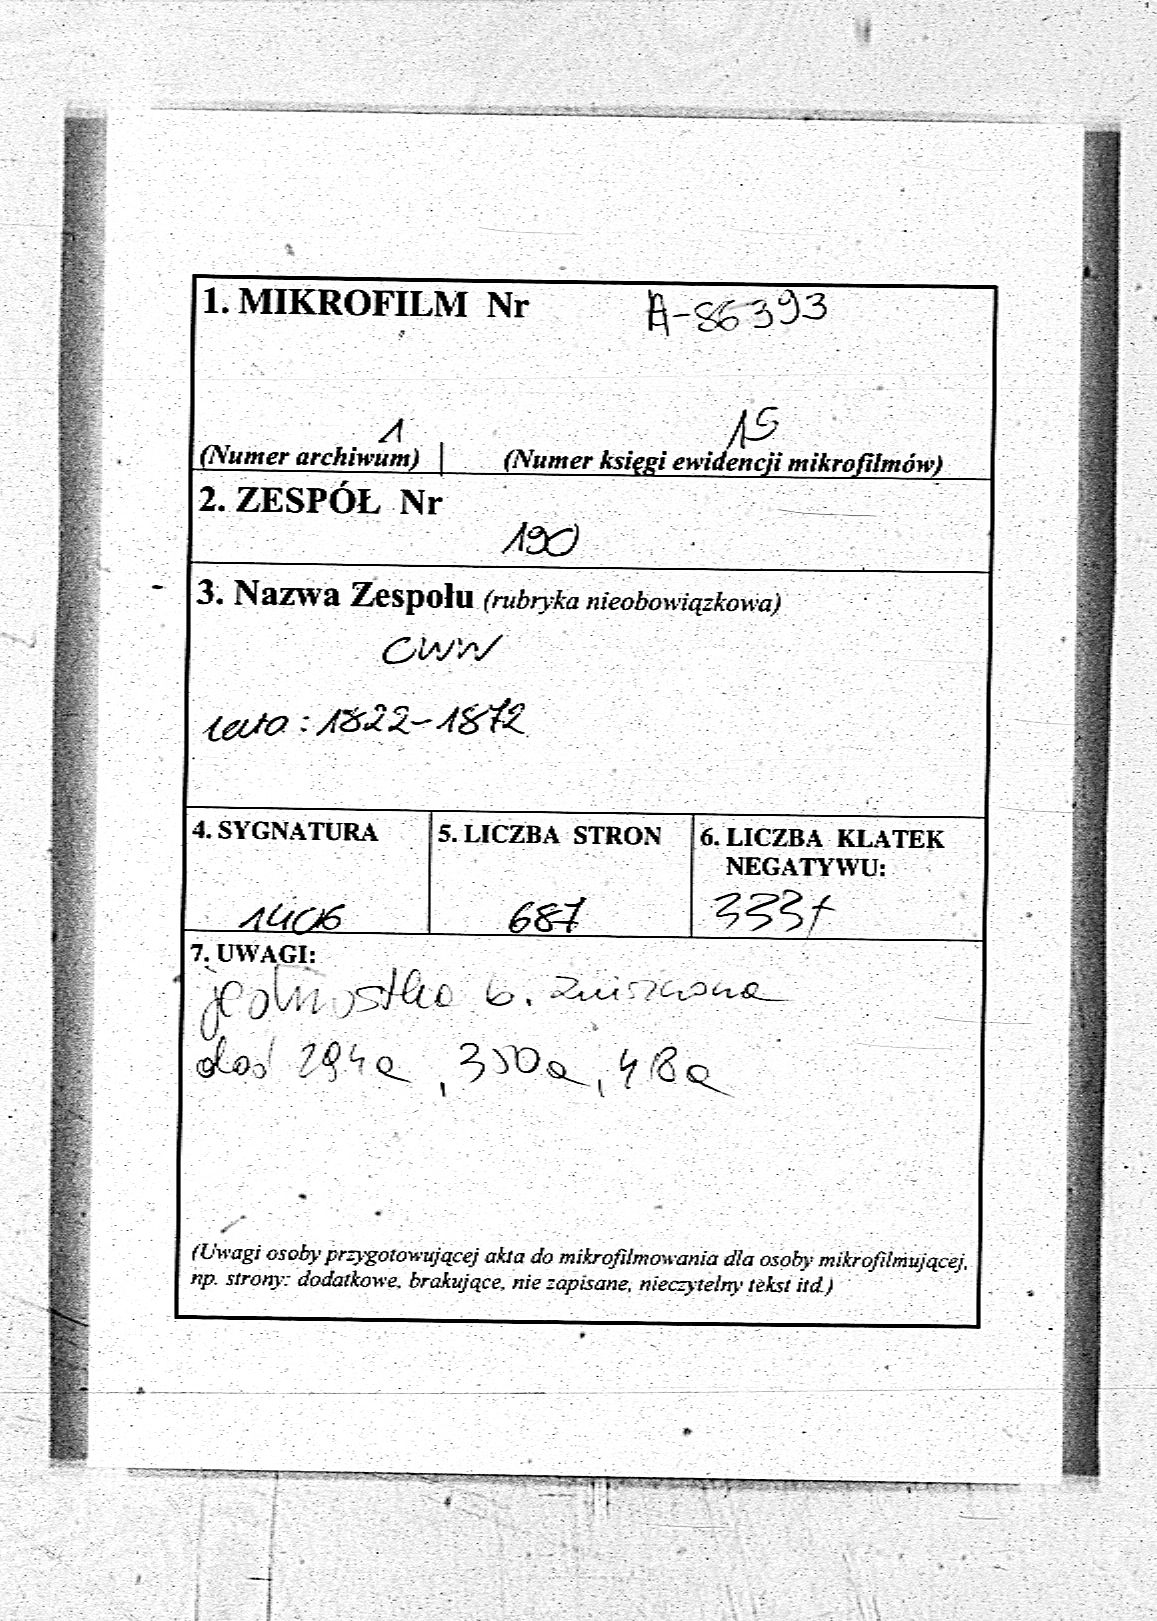 1. MIKROFILM Nr A-86393
1 15
(Numer archiwum) (Numer księgi ewidencji mikrofilmów)
2. ZESPÓŁ Nr
190
3. Nazwa Zespołu (rubryka nieobowiązkowa)
CWW
lata : 1822-1872
4. SYGNATURA 5. LICZBA STRON 6. LICZBA KLATEK
NEGATYWU:
1406 687 333+
7. UWAGI:
jednostka b. zniszczona
294a, 350a,
(Uwagi osoby przygotowującej akta do mikrofilmowania dla osoby mikrofilmującej,
np. strony: dodatkowe, brakujące, nie zapisane, nieczytelny tekst itd.)